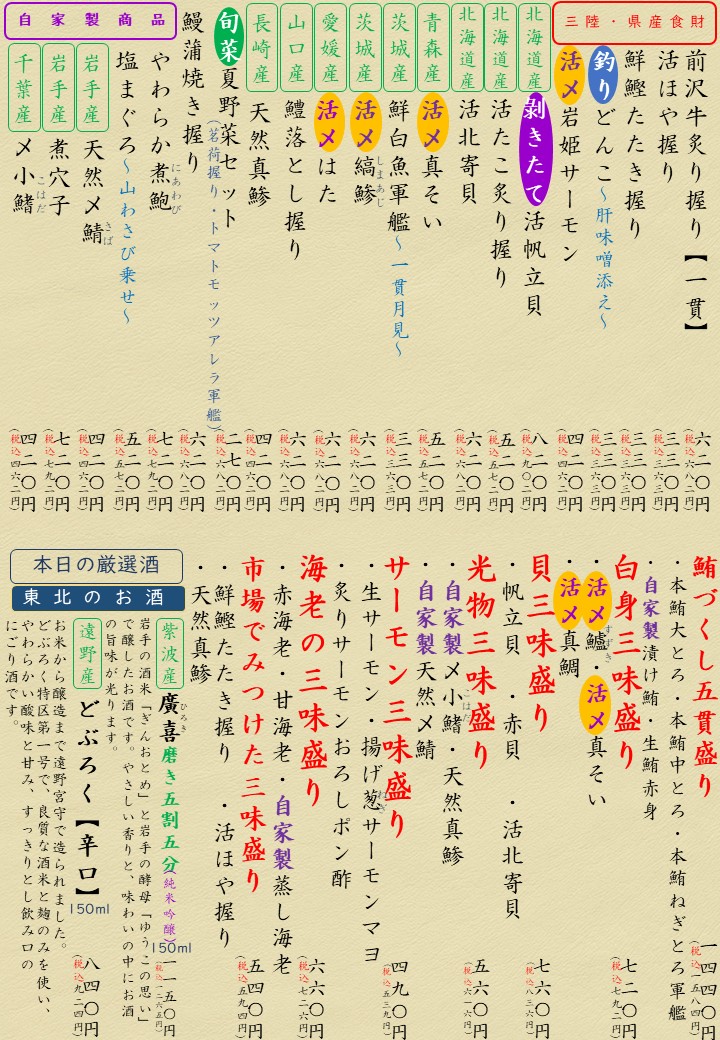 三陸・県産食財
前沢牛炙り握り【一貫】
六二〇円
(税込六八二円)
活ほや握り
三三〇円
(税込三六三円)
鮮鰹たたき握り
三三〇円
(税込三六三円)
釣りどんこ～肝味噌添え～
三三〇円
(税込三六三円)
活〆岩姫サーモン
四二〇円
(税込四六二円)
北海道産
剥きたて活帆立貝
八二〇円
(税込九〇二円)
北海道産
活たこ炙り握り
五二〇円
(税込五七二円)
北海道産
活北寄貝
六二〇円
(税込六八二円)
青森産
活〆真そい
五二〇円
(税込五七二円)
茨城産
鮮白魚軍艦～一貫月見～
三三〇円
(税込三六三円)
茨城産
活〆縞鯵
しまあじ
六二〇円
(税込六八二円)
愛媛産
活〆はた
六二〇円
(税込六八二円)
山口産
鱧落とし握り
六二〇円
(税込六八二円)
長崎産
天然真鯵
四二〇円
(税込四六二円)
旬菜夏野菜セット
(茗荷握り・トマトモッツアレラ軍艦)
二七〇円
鰻蒲焼き握り
六二〇円
(税込六八二円)
自家製商品
やわらか煮鮑
にあわび
七二〇円
(税込七九二円)
塩まぐろ～山わさび乗せ～
五二〇円
(税込五七二円)
岩手産
天然〆鯖
さば
四二〇円
(税込四六二円)
岩手産
煮穴子
七二〇円
(税込七九二円)
千葉産
〆小鰭
こはだ
四二〇円
(税込四六二円)
鮪づくし五貫盛り
・本鮪大とろ・本鮪中とろ・本鮪ねぎとろ軍艦
・自家製漬け鮪・生鮪赤身
一四四〇円
(税込一五八四円)
白身三味盛り
・活〆鱸・活〆真そい
すずき
・活〆真鯛
七二〇円
(税込七九二円)
貝三味盛り
・帆立貝・赤貝・活北寄貝
七六〇円
(税込八三六円)
光物三味盛り
・自家製〆小鰭・天然真鯵
こはだ
・自家製天然〆鯖
五六〇円
(税込六一六円)
サーモン三味盛り
・生サーモン・揚げ葱サーモンマヨ
ねぎ
・炙りサーモンおろしポン酢
四九〇円
(税込五三九円)
海老の三味盛り
・赤海老・甘海老・自家製蒸し海老
六六〇円
(税込七二六円)
市場でみつけた三味盛り
・鮮鰹たたき握り・活ほや握り
・天然真鯵
五四〇円
(税込五九四円)
本日の厳選酒
東北のお酒
紫波産
廣喜磨き五割五分(純米吟醸)
ひろき
150ml
一一五〇円
(税込一二六五円)
岩手の酒米「ぎんおとめ」と岩手の酵母「ゆうこの思い」
で醸したお酒です。やさしい香りと、味わいの中にお酒
の旨味が光ります。
遠野産
どぶろく【辛口】
150ml
八四〇円
(税込九二四円)
お米から醸造まで遠野宮守で造られました。
どぶろく特区第一号で、良質な酒米と麹のみを使い、
やわらかい酸味と甘み、すっきりとし飲み口の
にごり酒です。